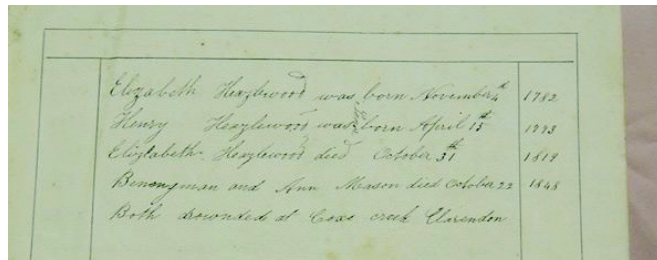 Elizabeth Heazlewood was born November 4th 1782
Henry Heazlewood was born April 15th 1793
Elizabeth Heazlewood died October 31th 1819
Benengman and Ann Mason died October 22 1848
Both drownded at Coxs creek Clarendon